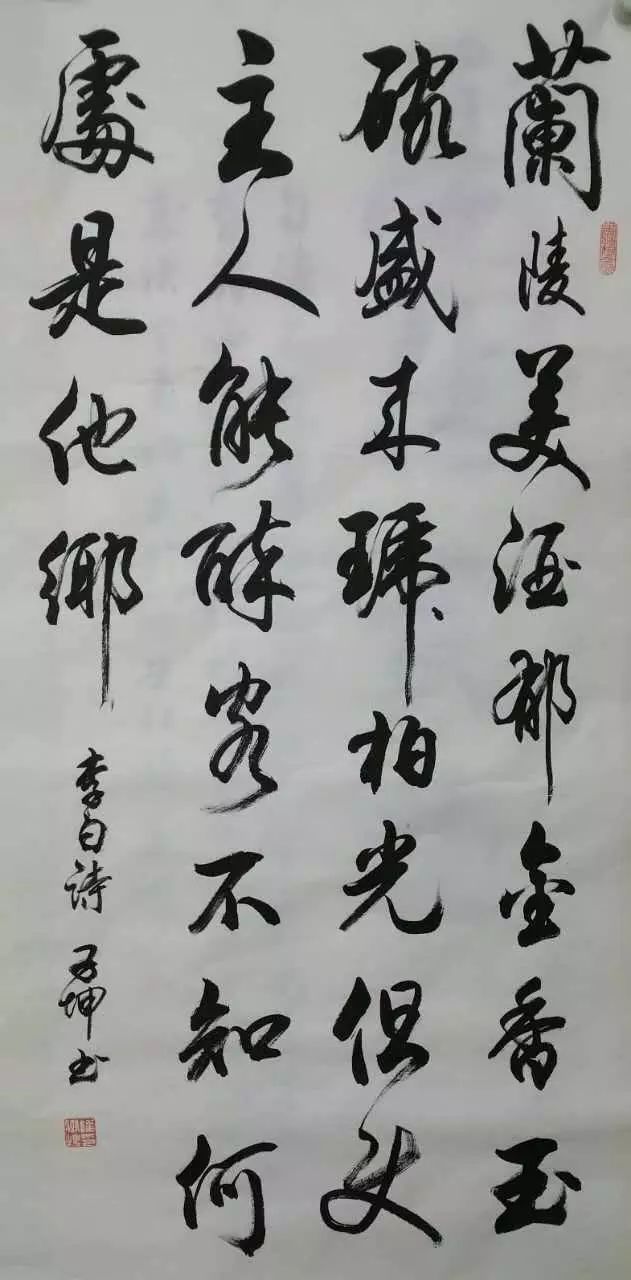 蘭陵美酒鬱金香玉
碗盛来琥珀光但使
主人能醉客不知何
處是他鄉
李白詩 子坤书